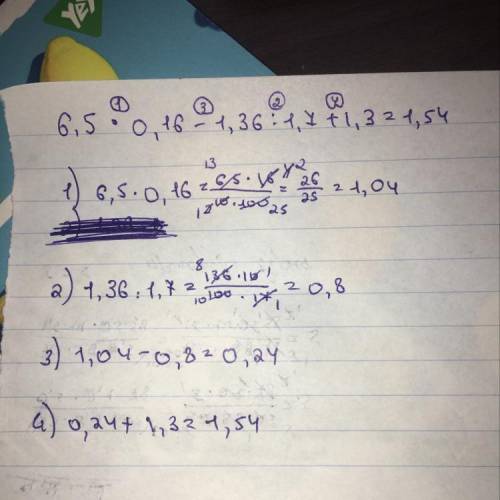 yeт
① ③ ② ④
6,5 · 0,16 - 1,36 : 1,7 + 1,3 = 1,54
1) 6,5 · 0,16 = 65 · 16 / 10 · 100 = 26/25 = 1,04
2) 1,36 : 1,7 = 136 · 10 / 100 · 17 = 0,8
3) 1,04 - 0,8 = 0,24
4) 0,24 + 1,3 = 1,54